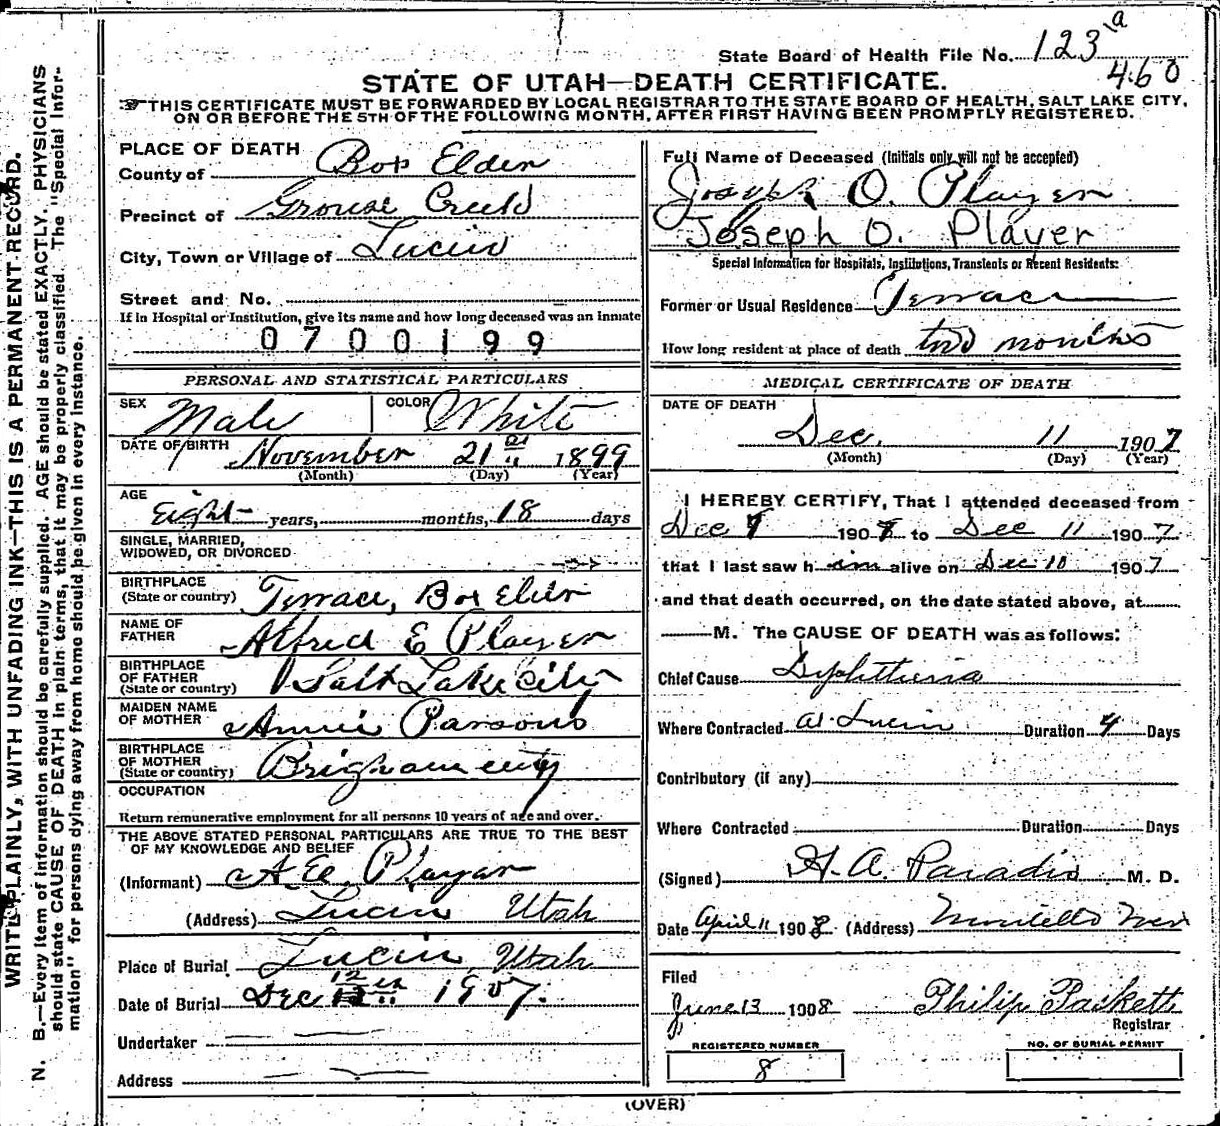 WRITE PLAINLY, WITH UNFADING INK—THIS IS A PERMANENT RECORD.
N. B.—Every item of information should be carefully supplied. AGE should be stated EXACTLY. PHYSICIANS
should state CAUSE OF DEATH in plain terms, that it may be properly classified. The "Special Infor-
mation" for persons dying away from home should be given in every instance.
State Board of Health File No. 123 a
460
STATE OF UTAH—DEATH CERTIFICATE.
THIS CERTIFICATE MUST BE FORWARDED BY LOCAL REGISTRAR TO THE STATE BOARD OF HEALTH, SALT LAKE CITY,
ON OR BEFORE THE 5TH OF THE FOLLOWING MONTH, AFTER FIRST HAVING BEEN PROMPTLY REGISTERED.
PLACE OF DEATH
County of Box Elder
Precinct of Grouse Creek
City, Town or Village of Lucin
Street and No.
If in Hospital or Institution, give its name and how long deceased was an inmate
0700199
PERSONAL AND STATISTICAL PARTICULARS
SEX Male COLOR White
DATE OF BIRTH November 21 st 1899
(Month) (Day) (Year)
AGE
Eight years, months, 18 days
SINGLE, MARRIED,
WIDOWED, OR DIVORCED
BIRTHPLACE
(State or country) Terrace, Box Elder
NAME OF
FATHER Alfred E Player
BIRTHPLACE
OF FATHER
(State or country) Salt Lake City
MAIDEN NAME
OF MOTHER Annie Parsons
BIRTHPLACE
OF MOTHER
(State or country) Brigham city
OCCUPATION
Return remunerative employment for all persons 10 years of age and over.
THE ABOVE STATED PERSONAL PARTICULARS ARE TRUE TO THE BEST
OF MY KNOWLEDGE AND BELIEF
(Informant) A. E. Player
(Address) Lucin Utah
Place of Burial Lucin, Utah
Date of Burial Dec 12 th 1907.
Undertaker
Address
Full Name of Deceased (Initials only will not be accepted)
Joseph O. Player
Joseph O. Player
Special Information for Hospitals, Institutions, Transients or Recent Residents:
Former or Usual Residence Terrace
How long resident at place of death two months
MEDICAL CERTIFICATE OF DEATH
DATE OF DEATH
Dec. 11 1907
(Month) (Day) (Year)
I HEREBY CERTIFY, That I attended deceased from
Dec 1907 to Dec 11 1907
that I last saw him alive on Dec 10 1907
and that death occurred, on the date stated above, at
M. The CAUSE OF DEATH was as follows:
Chief Cause Dyphtheria
Where Contracted at Lucin Duration 4 Days
Contributory (if any)
Where Contracted Duration Days
(Signed) H. A. Paradis M. D.
Date April 11 1908 (Address) Montello Nev
Filed
June 13 1908 Philip Paskett
Registrar
REGISTERED NUMBER
8
NO. OF BURIAL PERMIT
(OVER)